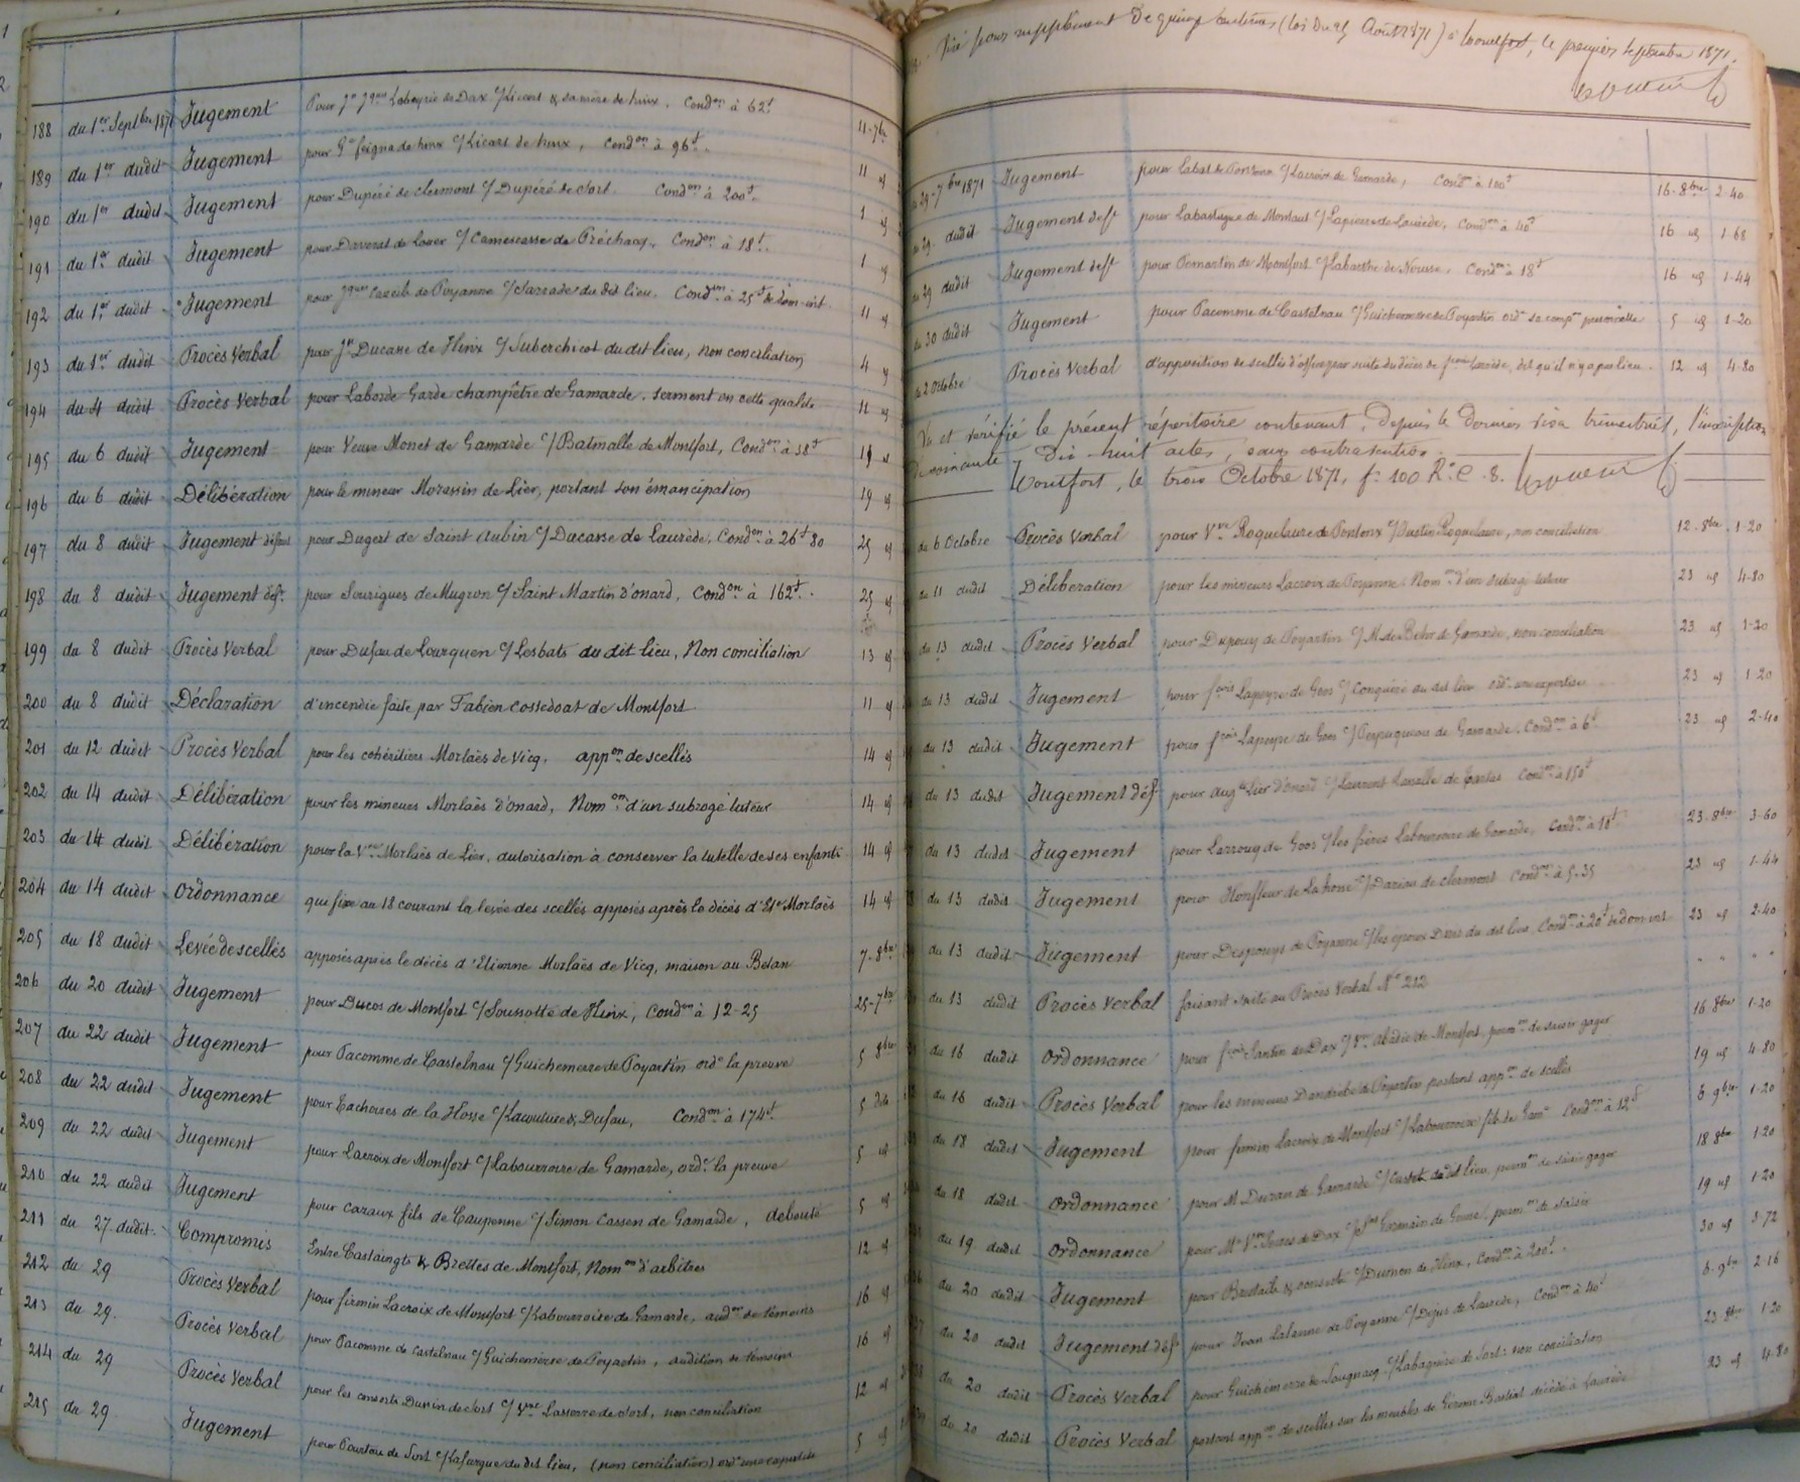 188 du 1er Septbre 1871 Jugement Pour Jn Jques Labeyrie de Dax c/ Ricart & sa mère de hinx. Condon à 62f 11-7bre
189 du 1er dudit Jugement pour Gme feigna de hinx c/ Ricart de hinx, Condon à 96f. 11 "
190 du 1er dudit Jugement pour Dupéré de clermont c/ Dupéré de Sort. Condon à 200f. 1 "
191 du 1er dudit Jugement pour Daverat de Louer c/ Camescasse de Préchacq. Condon à 18f. 1 "
192 du 1er dudit Jugement pour Jques de Poyanne c/ du dit lieu. Condon à 25f de dom-int 11 "
193 du 1er dudit Procès Verbal pour Jn Ducasse de Hinx c/ Suberchicot du dit lieu, non conciliation 4 "
194 du 4 dudit Procès Verbal pour Laborde Garde champêtre de Gamarde. serment en cette qualité 11 "
195 du 6 dudit Jugement pour Veuve Monet de Gamarde c/ Batmalle de Montfort, Condon à 38f 19 "
196 du 6 dudit Délibération pour le mineur Moressin de Lier, portant son émancipation 19 "
197 du 8 dudit Jugement défaut pour Dugert de Saint Aubin c/ Ducasse de Laurède, Condon à 26f 80 25 "
198 du 8 dudit Jugement déft pour Sourigues de Mugron c/ Saint Martin d'onard, Condon à 162f. 25 "
199 du 8 dudit Procès Verbal pour Dufau de Lourquen c/ Lesbats du dit lieu, Non conciliation 13 "
200 du 8 dudit Déclaration d'incendie faite par Fabien Cossedoat de Montfort 11 "
201 du 12 dudit Procès Verbal pour les cohéritiers Morlaës de Vicq. appon de scellés 14 "
202 du 14 dudit Délibération pour les mineurs Morlaës d'onard, Nomon d'un subrogé tuteur 14 "
203 du 14 dudit Délibération pour la Vve Morlaës de Lier, autorisation à conserver la tutelle de ses enfants 14 "
204 du 14 dudit Ordonnance qui fixe au 18 courant la levée des scellés apposés après le décès d'Et. Morlaës 14 "
205 du 18 dudit Levée de scellés apposés après le décès d'Etienne Morlaës de Vicq, maison au Betan 7-8bre
206 du 20 dudit Jugement pour Ducos de Montfort c/ Soussotte de Hinx, Condon à 12-25 25-7bre
207 du 22 dudit Jugement pour Pacomme de Castelnau c/ Guichemerre de Poyartin ordt la preuve 5 8bre
208 du 22 dudit Jugement pour Cachoires de la Hosse c/ Lacouture & Dufau, Condon à 174f 5 dit
209 du 22 dudit Jugement pour Lacroix de Montfort c/ Labourroire de Gamarde, ordt la preuve 5 "
210 du 22 dudit Jugement pour Cazaux fils de Caupenne c/ Simon Cassen de Gamarde, débouté 5 "
211 du 27 dudit Compromis Entre Castaingts & Brettes de Montfort, Nomon d'arbitres 12 "
212 du 29 Procès Verbal pour firmin Lacroix de Montfort c/ Labourroire de Gamarde, audon de témoins 16 "
213 du 29. Procès Verbal pour Pacomme de Castelnau c/ Guichemerre de Poyartin, audition de témoins 16 "
214 du 29 Procès Verbal pour les consorts Dussin de Sort c/ Vve Lasserre de Sort, non conciliation 12 "
215 du 29 Jugement pour Pourtau de Sort c/ Lafargue du dit lieu, (non conciliation) ordt une expertise 5 "
Visé pour supplément de quinze centimes (loi du Août 1871) à Montfort, le premier Septembre 1871.
29-7bre 1871 Jugement pour Labat de Pontonx c/ Lacroix de Gamarde, Condon à 100f 16-8bre 2-40
29 dudit Jugement deft pour Labastugue de Montaut c/ Lapierre de Laurède, Condon à 40f 16 " 1-68
29 dudit Jugement deft pour Pomartin de Montfort c/ Labarthe de Nousse, Condon à 18f 16 " 1-44
30 dudit Jugement pour Pacomme de Castelnau c/ Guichemerre de Poyartin ordt sa compon personnelle 5 " 1-20
2 Octobre Procès Verbal d'apposition de scellés d'office par suite du décès de Larrède, dit qu'il n'y a pas lieu. 12 " 4-80
Vu et vérifié le présent répertoire contenant, depuis le dernier visa trimestriel, l'inscription
de soixante dix huit actes, sans contravention.
Montfort, le trois Octobre 1871, f° 100 R° C. 8.
du 6 Octobre Procès Verbal pour Vve Roquelaure de Pontonx c/ Justin Roquelaure, non conciliation 12-8bre 1-20
du 11 dudit Délibération pour les mineurs Lacroix de Poyanne. Nomon d'un subrogé tuteur 23 " 4-80
du 13 dudit Procès Verbal pour Dupouy de Poyartin c/ M. de Behr de Gamarde, non conciliation 23 " 1-20
du 13 dudit Jugement pour fois Lapeyre de Goos c/ Conquéré du dit lieu ordt une expertise 23 " 1-20
du 13 dudit Jugement pour fois Lapeyre de Goos c/ de Gamarde. Condon à 6f 23 " 2-40
du 13 dudit Jugement déft pour Augte Lier d'onard c/ Laurent Lasalle de Condon à 150f
du 13 dudit Jugement pour Larrouy de Goos c/ les frères Labourroire de Gamarde, Condon à 18f 23-8bre 3-60
du 13 dudit Jugement pour Honfleur de La hosse c/ Darieu de clermont Condon à 5-35 23 " 1-44
du 13 dudit Jugement pour Desporuys de Poyanne c/ les époux du dit lieu, Condon à 20f de dom-int 23 " 2-40
du 13 dudit Procès Verbal faisant suite au Procès Verbal N° 212 " " " "
du 16 dudit Ordonnance pour fois Santin de Dax c/ Vve abadie de Montfort, permon de saisir gager 16 8bre 1-20
du 16 dudit Procès Verbal pour les mineurs Dandieba de Poyartin portant appon de scellés 19 " 4-80
du 18 dudit Jugement pour firmin Lacroix de Montfort c/ Labourroire fils de Gamde Condon à 12f 6 9bre 1-20
du 18 dudit Ordonnance pour M. Duran de Gamarde c/ du dit lieu, permon de saisir gager 18 8bre 1-20
du 19 dudit Ordonnance pour Me Vor de Dax c/ Germain de Gousse, permon de saisir 19 " 1-20
du 20 dudit Jugement pour & consorts c/ Dumon de Hinx, Condon à 200f. 30 " 3-72
du 20 dudit Jugement déft pour Jean Lalanne de Poyanne c/ Dejus de Laurède, Condon à 40f 6-9bre 2-16
du 20 dudit Procès Verbal pour Guichemerre de Sougnacq c/ Labaguère de Sort: non conciliation 23 8bre 1-20
du 20 dudit Procès Verbal portant appon de scellés sur les meubles de Gérome Bastiat décédé à Laurède 23 " 4-80